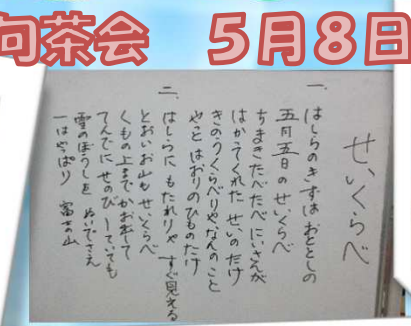 句茶会 5月8日
せいくらべ
一、はしらのきずは おととしの
五月五日の せいくらべ
ちまきたべたべ にいさんが
はかってくれた せいのたけ
きのうくらべりゃ なんのこと
やっと はおりのひものたけ
二、はしらに もたれりゃ すぐ見える
とおいお山も せいくらべ
くもの上まで かお出して
てんでに せのび していても
雪のぼうしを ぬいでさえ
一はやっぱり 富士の山